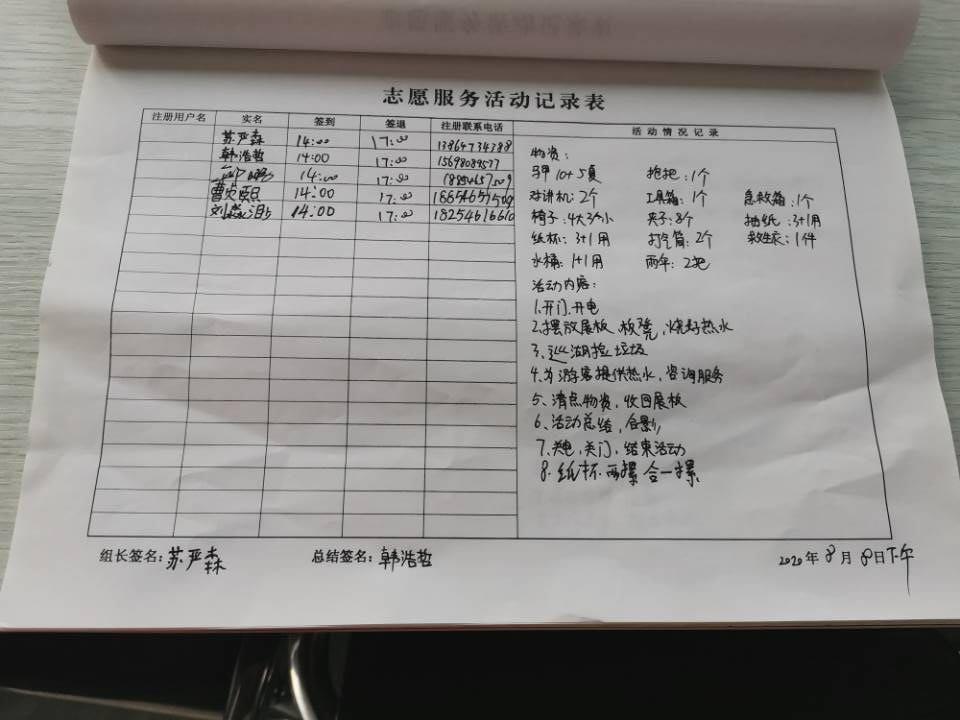 志愿服务活动记录表
注册用户名 实名 签到 签退 注册联系电话 活动情况记录
苏严森 14:00 17:00 13864734388
韩浩哲 14:00 17:00 15698089577
14:00 17:00
14:00 17:00
刘 14:00 17:00 18254616610
物资:
马甲 10+5夏 抱抱:1个
对讲机:2个 工具箱:1个 急救箱:1个
椅子:4大3小 夹子:8个 抽纸:3+1用
纸杯:3+1用 打气筒:2个 救生衣:1件
水桶:1+1用 雨伞:2把
活动内容:
1.开门.开电
2.摆放展板、板凳,烧好热水
3、巡湖捡垃圾
4、为游客提供热水,咨询服务
5、清点物资,收回展板
6、活动总结,合影
7、关电,关门,结束活动
8.纸杯两摞合一摞
组长签名:苏严森 总结签名:韩浩哲 2020年8月8日下午